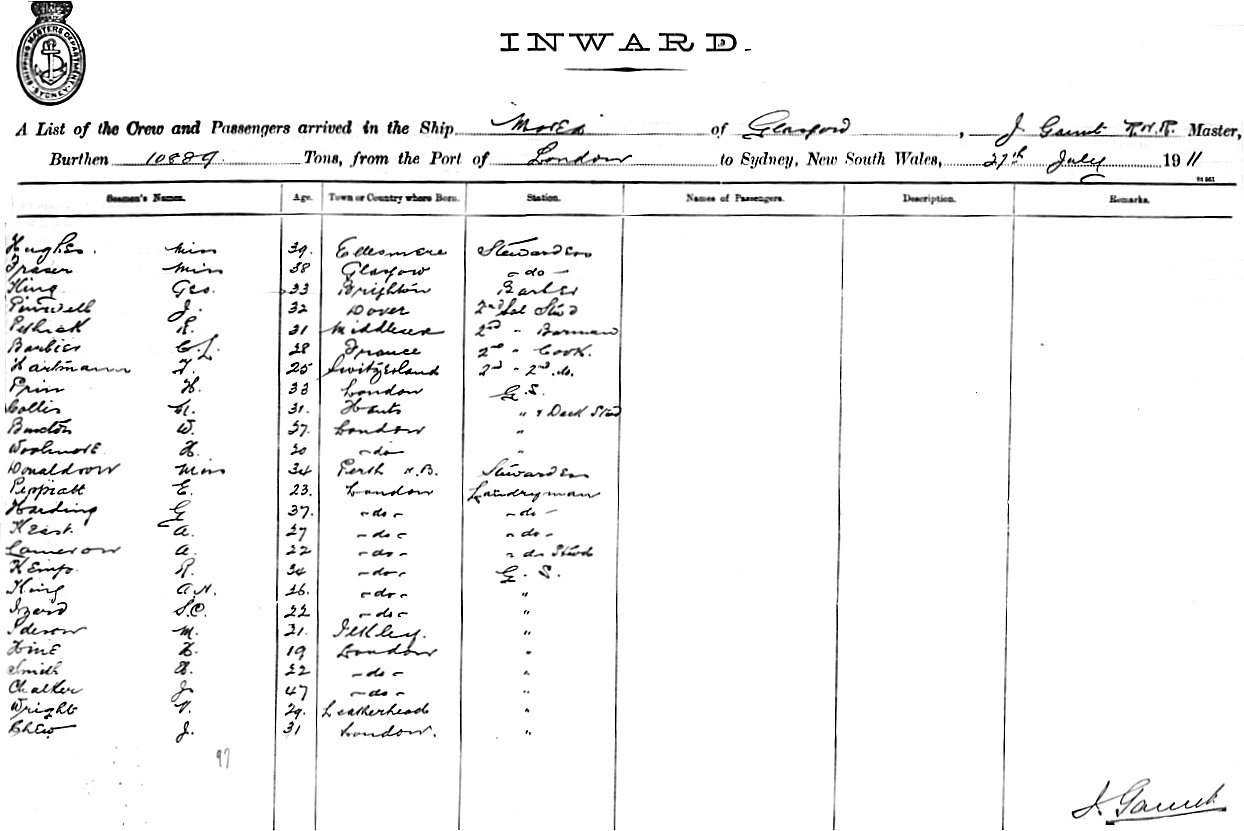 SHIPPING MASTERS DEPARTMENT SYDNEY
INWARD.
A List of the Crew and Passengers arrived in the Ship Morea of Glasgow, J R.N.R. Master,
Burthen 10889 Tons, from the Port of London to Sydney, New South Wales, 27th July 1911
Seamen's Names. Age. Town or Country where Born. Station. Names of Passengers. Description. Remarks.
Hughes. Miss 39. Ellesmere Stewardess
Fraser Miss 38 Glasgow - do -
King Geo. 33 Brighton Barber
J. 32 Dover 2nd Sal Std
Pethick R. 31 Middlesex 2nd " Barman
Barbier C.L. 28 France 2nd " Cook.
Hartmann F. 25 Switzerland 2nd - 2nd do.
Prin H. 33 London G.S.
Collis 31. Hants " & Deck Std
Buxton W. 27. London "
Woolmore. H. 20 -do- "
Donaldson Miss 34 Perth N.B. Stewardess
Peppiatt E. 23. London Laundryman
Harding G 37. -do- -do-
Keast. A. 27 -do- -do-
Cameron A. 22 -do- " do Stwd
Kemp. R. 34 -do- G. S.
King A.H. 26. -do- "
Izard S.C. 22 -do- "
M. 21. Ilkley. "
Hine H. 19 London "
Smith H. 22 -do- "
Chalker J. 47 -do- "
Wright 29. Leatherhead "
Chew J. 31 London. "
97